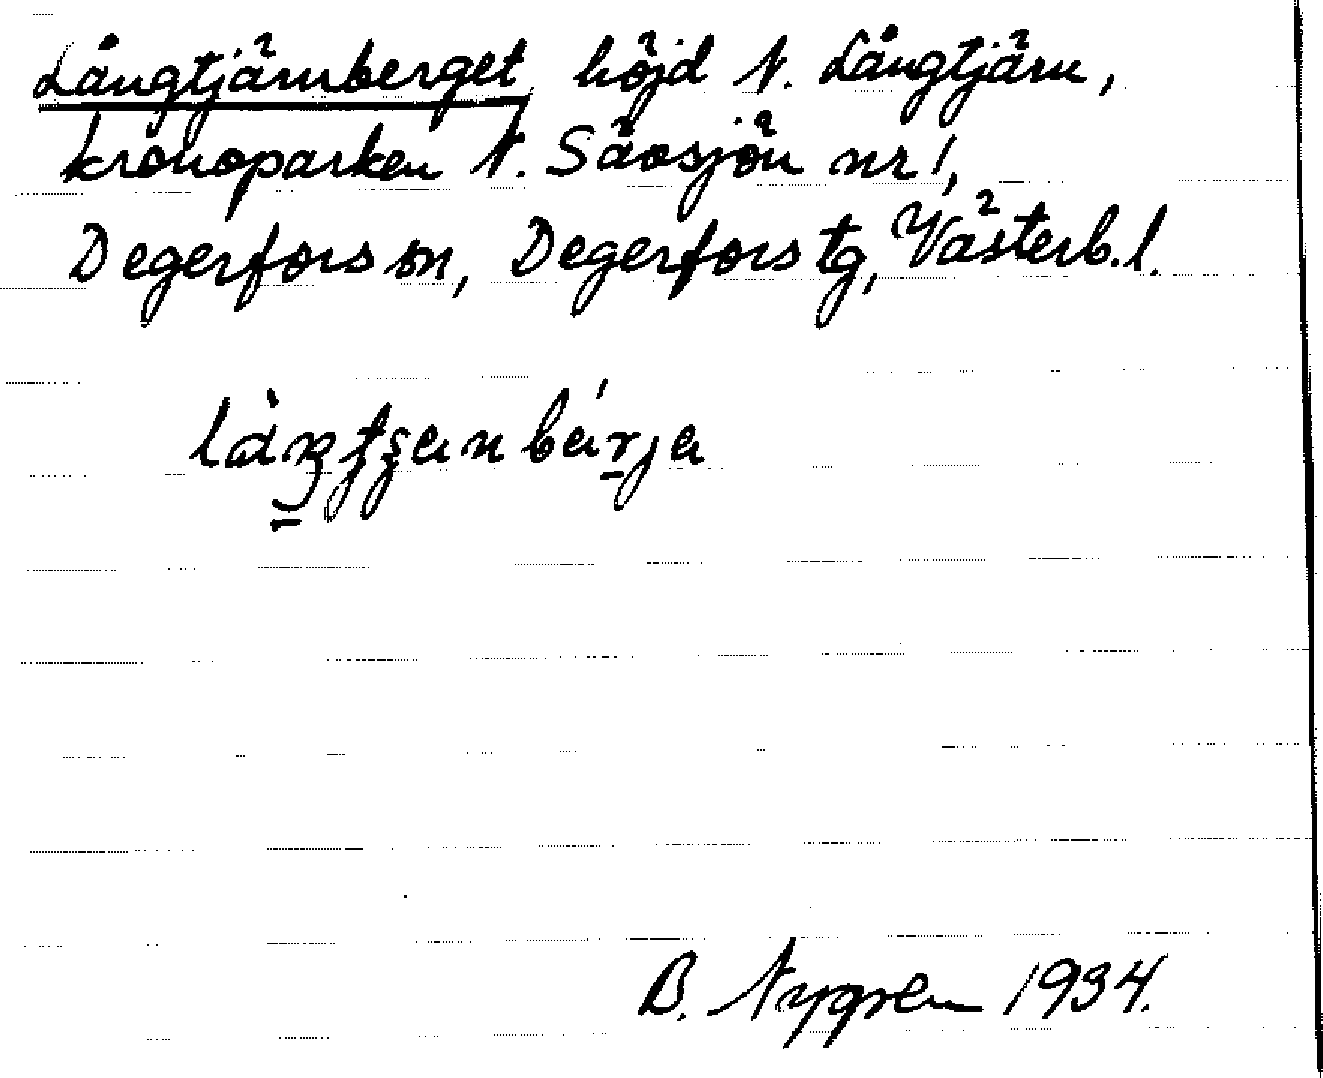 Långtjärnberget höjd N. Långtjärn,
kronoparken N. Såosjön nr 1,
Degerfors sn, Degerfors tg, Västerb. l.
B. Nygren 1934.